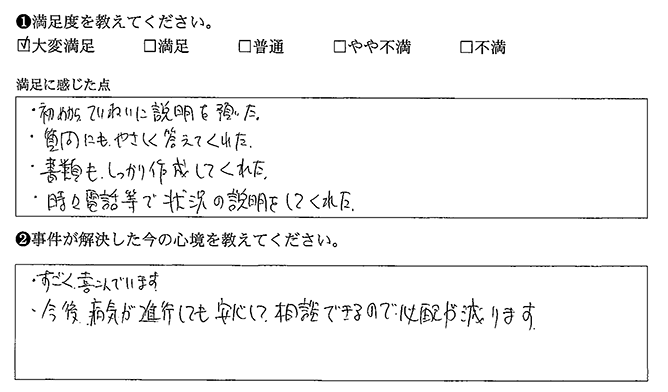 ❶満足度を教えてください。
☑大変満足 □満足 □普通 □やや不満 □不満
満足に感じた点
・初めからていねいに説明を頂いた。
・質問にも、やさしく答えてくれた。
・書類も、しっかり作成してくれた。
・時々電話等で状況の説明をしてくれた。
❷事件が解決した今の心境を教えてください。
・すごく、喜こんでいます
・今後、病気が進行しても安心して相談できるので心配が減ります。